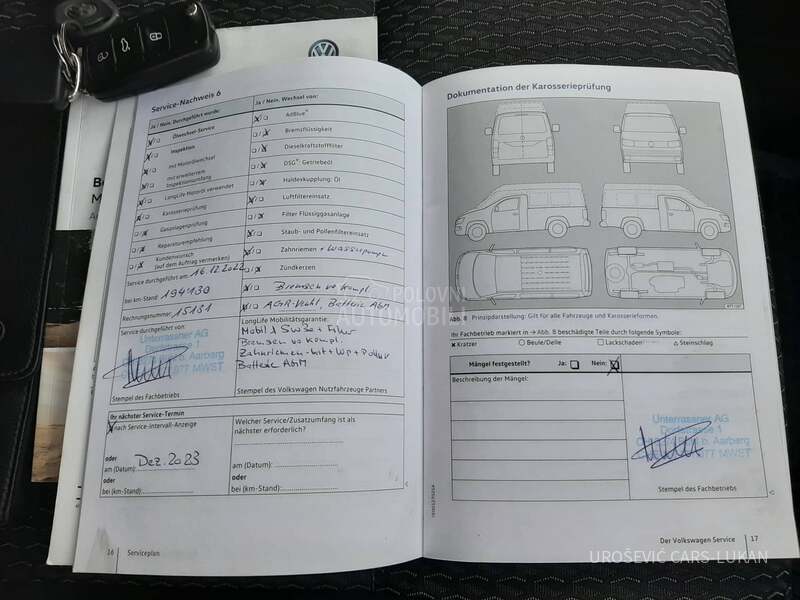 Service-Nachweis 6
Ja / Nein. Durchgeführt wurde:
Ja / Nein. Wechsel von:
Ölwechsel Service
AdBlue®
Inspektion
Bremsflüssigkeit
mit Motorölwechsel
Dieselkraftstofffilter
mit erweitertem Inspektionsumfang
DSG®: Getriebeöl
LongLife-Motoröl verwendet
Haldexkupplung: Öl
Karosserieprüfung
Luftfiltereinsatz
Gasanlagenprüfung
Filter Flüssiggasanlage
Reparaturempfehlung
Staub- und Pollenfiltereinsatz
Kundenwunsch
(auf dem Auftrag vermerken)
Zahnriemen + Wasserpumpe
Service durchgeführt am: 16.12.2022
Zündkerzen
bei km-Stand: 194'130
Bremsen vo kompl.
Rechnungsnummer: 15151
AGR-Ventil, Batterie AGM
Service durchgeführt von
Unterrassner AG
Stempel des Fachbetriebs
LongLife Mobilitätsgarantie:
Mobil 1 5w30 + Filter
Bremsen vo kompl.
Zahnriemen-kit + WP + Pollen
Batterie AGM
Stempel des Volkswagen Nutzfahrzeuge Partners
Ihr nächster Service-Termin
nach Service-Intervall-Anzeige
oder
am (Datum): Dez. 2023
oder
bei (km-Stand):
Welcher Service/Zusatzumfang ist als
nächster erforderlich?
am (Datum):
oder
bei (km-Stand):
16 Serviceplan
Dokumentation der Karosserieprüfung
Abb. 8 Prinzipdarstellung: Gilt für alle Fahrzeuge und Karosserieformen.
Ihr Fachbetrieb markiert in → Abb. 8 beschädigte Teile durch folgende Symbole:
× Kratzer ○ Beule/Delle □ Lackschaden △ Steinschlag
Mängel festgestellt? Ja: Nein:
Beschreibung der Mängel:
Unterrassner AG
Dorfstrasse 1
Stempel des Fachbetriebs
Der Volkswagen Service 17
POLOVNI
AUTOMOBILI
UROŠEVIĆ CARS-LUKAN